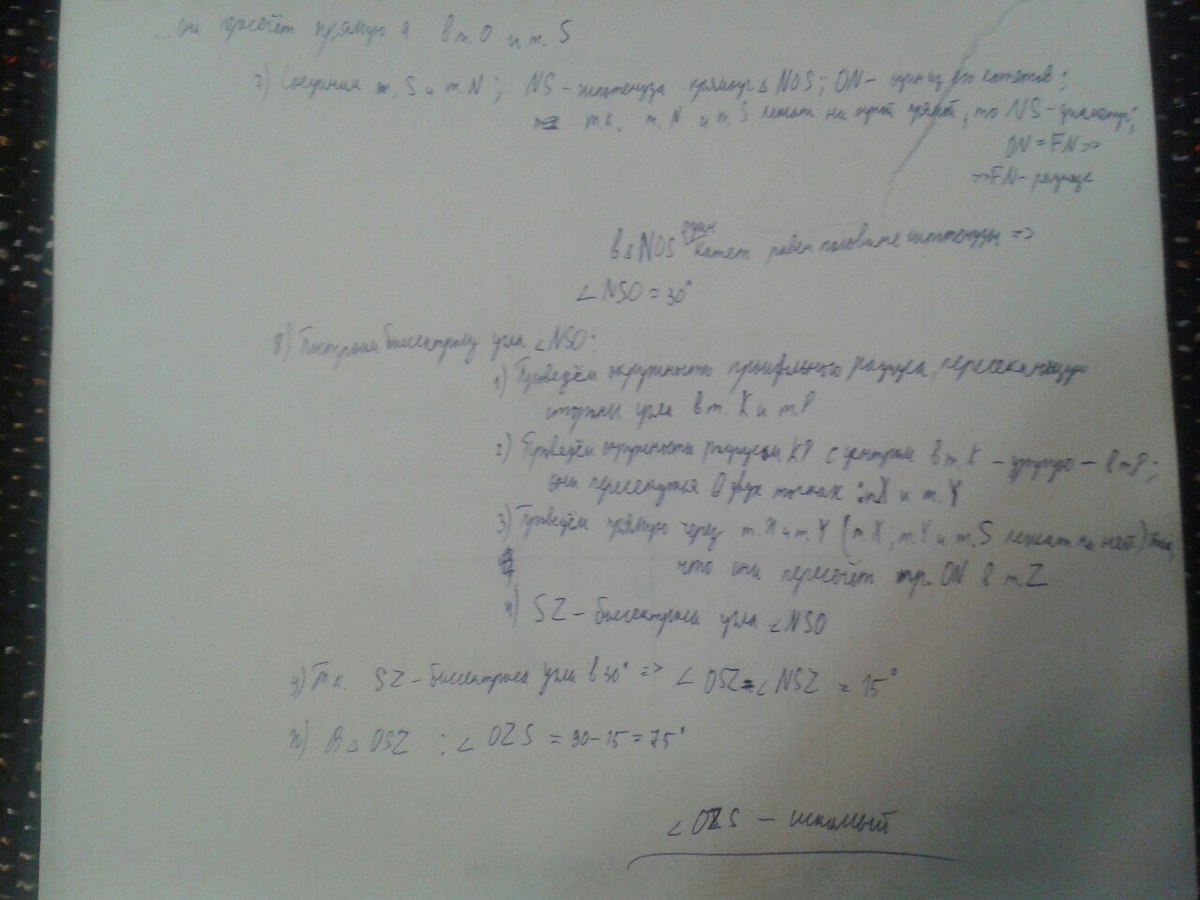 они пересечёт прямую a в т. O и т. S
7) Соединим т. S и т. N; NS - гипотенуза прямоуг △ NOS; ON - один из катетов;
т.к. т. N и т. S лежат на одной прямой, то NS - диаметр;
ON = FN =>
=> FN - радиус
в △ NOS один катет равен половине гипотенузы =>
∠ NSO = 30°
8) Построим биссектрису угла ∠ NSO:
1) Проведём окружность произвольного радиуса, пересекающую
стороны угла в т. K и т. P
2) Проведём окружность радиусом KP с центром в т. K - другую - в т. P;
они пересекутся в двух точках: т. X и т. Y
3) Проведём прямую через т. X и т. Y (т. X, т. Y и т. S лежат на ней)
что они пересечёт пр. ON в т. Z
4) SZ - биссектриса угла ∠ NSO
9) Т.к. SZ - биссектриса угла в 30° => ∠ OSZ = ∠ NSZ = 15°
10) В △ OSZ : ∠ OZS = 90-15 = 75°
∠ OZS - искомый